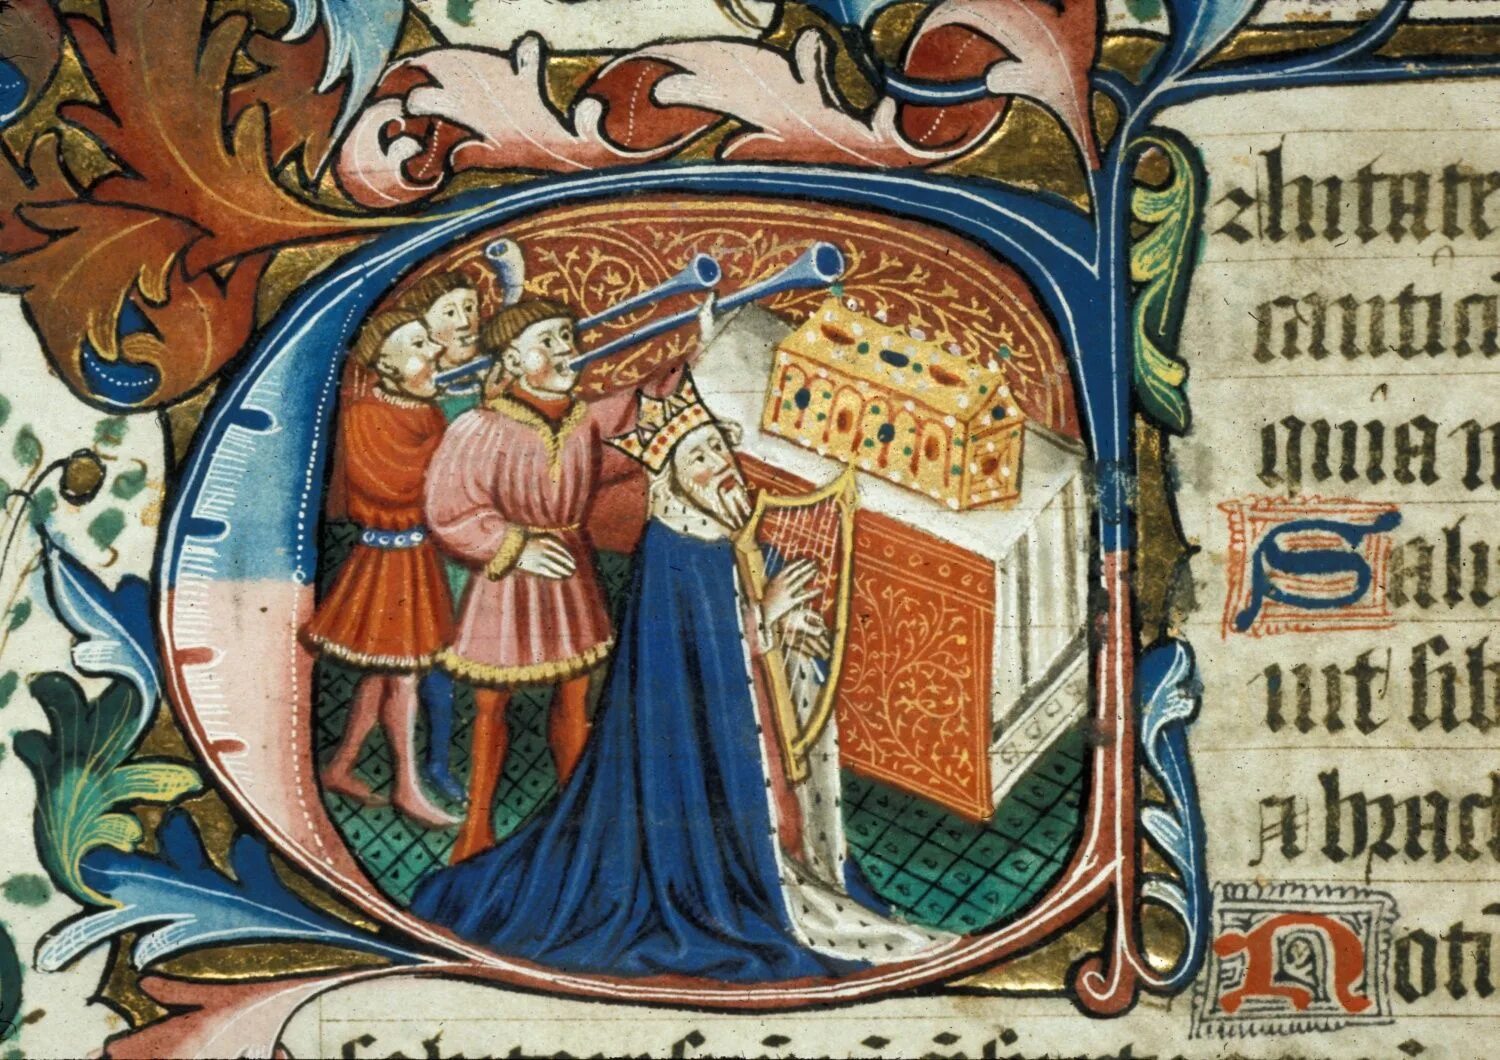 Antate
cantic
quia m
Salu
uit sib
& brach
Noti